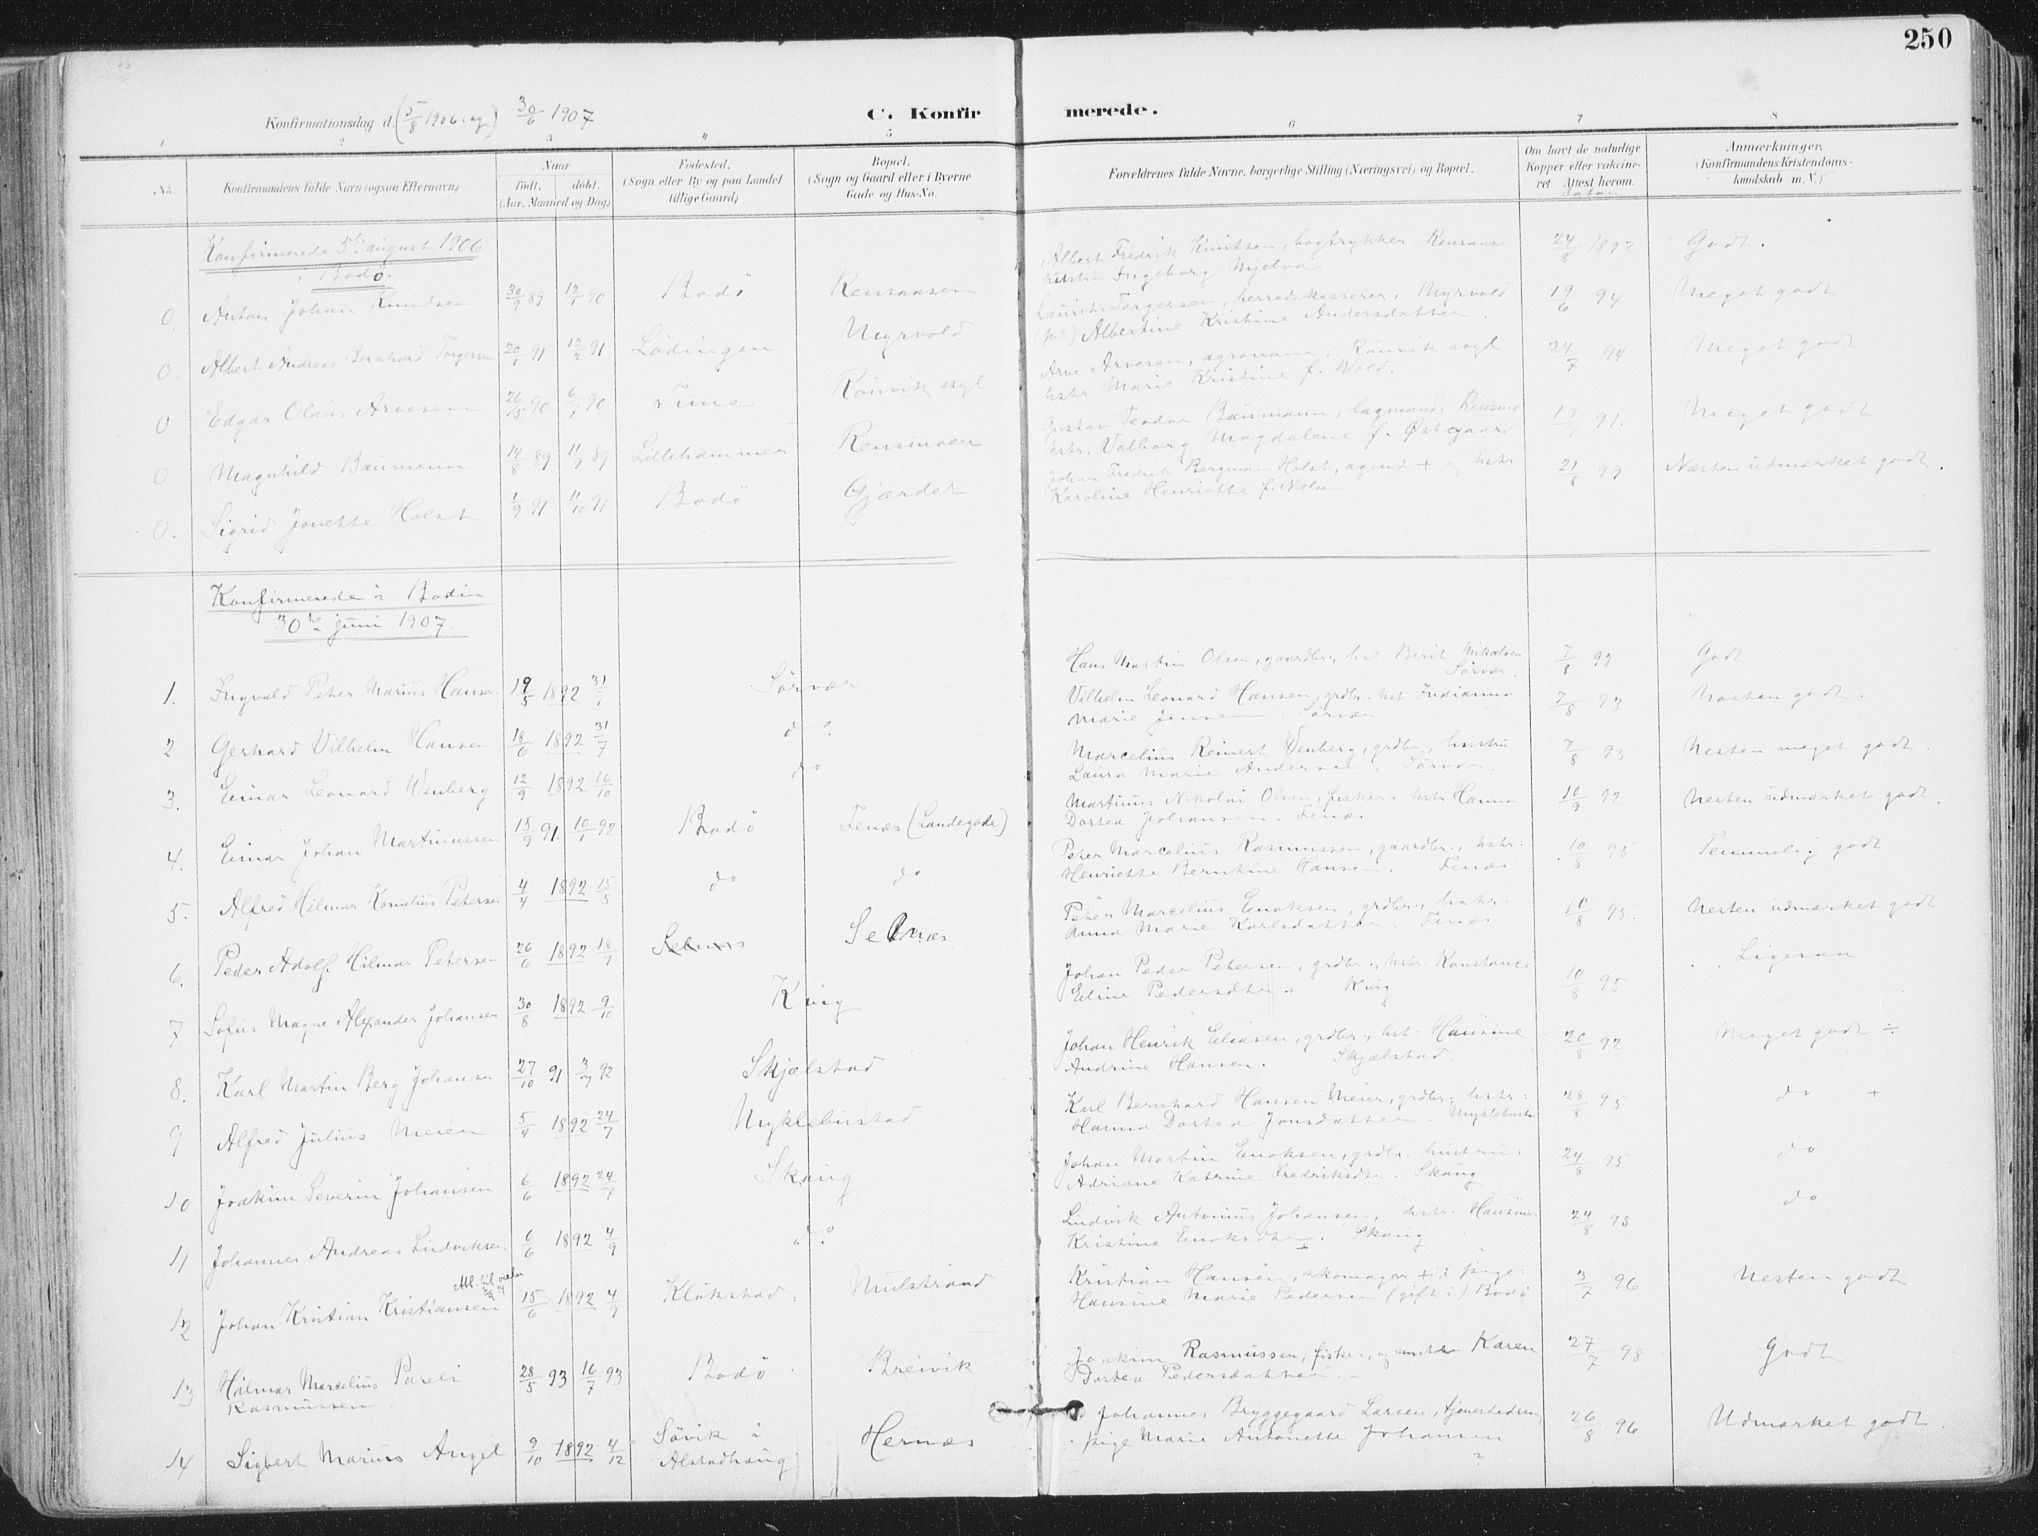 250
Konfirmationsdag d. (5/8 1906 og) 30/6 1907
C. Konfirmerede.
1 2 3 4 5 6 7 8
No.
Konfirmandens fulde Navn (ogsaa Efternavn)
Naar
født. døbt.
(Aar, Maaned og Dag)
Fødested.
(Sogn eller By og paa Landet
tillige Gaard)
Bopæl.
(Sogn og Gaard eller i Byerne
Gade og Hus-No.
Forældrenes fulde Navne, borgerlige Stilling (Næringsvei) og Bopæl.
Om havt de naturlige
Kopper eller vakcine-
ret. Attest herom.
Datum
Anmærkninger.
(Konfirmandens Kristendoms-
kundskab m. V.)
Konfirmerede 5te august 1906
i Bodø.
0. Anton Johan Knudsen 30/9 89 12/1 90 Bodø Rensaasen Albert Fredrik Knutsen, bogtrykker Rensaas
hustru Ingeborg Mjelva 24/8 1892 Godt.
0. Albert Andreas Bernhard Torgersen 20/1 91 12/2 91 Lødingen Myrvold Laurits Torgersen, herredskasserer, Myrvold
Albertine Kristine Andersdatter. 19/6 94 Meget godt
0. Edgar Olaus Arvesen 26/5 90 6/7 90 Tune Rønvik asyl Arve Arvesen, agronom, Rønvik asyl
hstr. Marie Kristine f. Wold. 24/7 94 Meget godt
0. Magnhild Baumann 14/8 89 11/9 89 Lillehammer Rensmoen Gustav Teodor Baumann, lagmand, Rensmo
hstr. Valborg Magdalene f. Østegaard 13/7 91. Meget godt
0. Sigrid Jonette Holst 1/9 91 11/10 91 Bodø Gjærdet Johan Fredrik Bergman Holst, agent + og hstr
Karoline Henriette f. Nielsen 21/8 99 Næsten udmærket godt.
Konfirmerede i Bodin
30te juni 1907.
1. Ingvald Peter Marius Hansen 19/5 1892 31/7 Sørvær Hans Martin Olsen, gaardbr., hst Berit Mikalsen
Sørvær. 7/8 93 Godt
2 Gerhard Vilhelm Hansen 18/6 1892 31/7 do. Vilhelm Leonard Hansen, grdbr. hst Indianna
Marie Jensen. Sørvær 7/8 93 Næsten godt.
3. Einar Leonard Wenberg 12/9 1892 16/10 do Marcelius Reinert Wenberg, grdbr, hustru
Laura Marie Andersen. Sørvær. 7/8 93 Nesten meget godt.
4. Einar Johan Martinussen 15/9 91. 10/1 92 Bodø Fenæs (Landegode) Martinus Nikolai Olsen, fisker, hstr Hanna
Dortea Johansen. Fenæs 92 Nesten udmærket godt.
5. Alfred Hilmar Kornelius Petersen 4/4 1892 15/5 do do Peter Marcelius Rasmussen, gaardbr., hstr:
Henriette Berntine Hansen. Fenæs 10/8 95 Temmelig godt
6. Peder Adolf Hilmar Petersen 26/6 1892 18/7 Selnæs Selnæs. Peter Marcelius Enoksen, grdbr., hstr.
Anna Marie Karlsdatter. Fenæs 10/8 95. Nesten udmærket godt
7 Sofus Magne Alexander Johansen 30/8 1892 9/10 Kvig Johan Peder Petersen, grdbr., hstr: Konstance
Eline Pedersdtr + Kvig 10/8 95 Ligesaa
8. Karl Martin Berg Johansen 27/10 91 3/7 92 Skjælstad Johan Henrik Eliasen, grdbr., hst: Hansine
Andrine Hansen. Skjælstad. 20/8 92 Meget godt ÷
9 Alfred Julius Meier 5/4 1892 24/7 Myklebustad Karl Bernhard Hansen Meier, grdbr; hstr:
Hanna Dortea Jonsdatter. Myklebust 28/8 95 do +
10 Joakim Severin Johansen 6/6 1892 24/7 Skaug Johan Martin Enoksen, grdbr. hustru:
Adriane Katrine Fredriksdtr. Skaug 24/8 95 do
11 Johannes Andreas Ludviksen 6/6 1892 4/9 do. Ludvik Antonius Johansen, hstr: Hansine
Kristine Enoksdtr. Skaug 24/8 93 do
12 Johan Kristian Kristiansen 15/6 1892 4/9 Kløkstad. Mulstrand Kristian Hansen, skomager + i pige:
Hansine Marie Pedersen (gift i) Bodø 3/7 96 Nesten godt
13 Hilmar Marcelius Pareli
Rasmussen 28/5 93 16/7 93 Bodø Breivik Joakim Rasmussen, fisker, og hustr Karen
Dortea Pedersdatter. 27/7 98 Godt
14 Sigbert Marius Angel 9/10 1892 4/12 Søvik i
Alstadhaug Hernæs Johannes Bryggegaard Larsen, tjenestedreng
pige Marie Antonette Johansen
? 26/8 96 Udmærket godt.